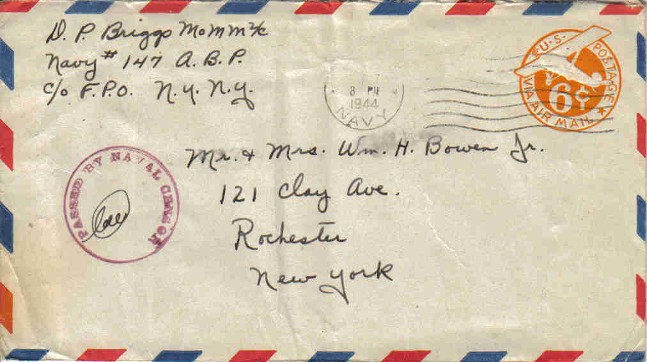 D. P. Briggs MoMM 2/c
Navy # 147 A.B.P.
c/o F.P.O. N.Y. N.Y.
8 PM
1944
NAVY
U.S. POSTAGE
6¢
VIA AIR MAIL
PASSED BY NAVAL CENSOR
Mr. & Mrs. Wm. H. Bowen Jr.
121 Clay Ave.
Rochester
New York